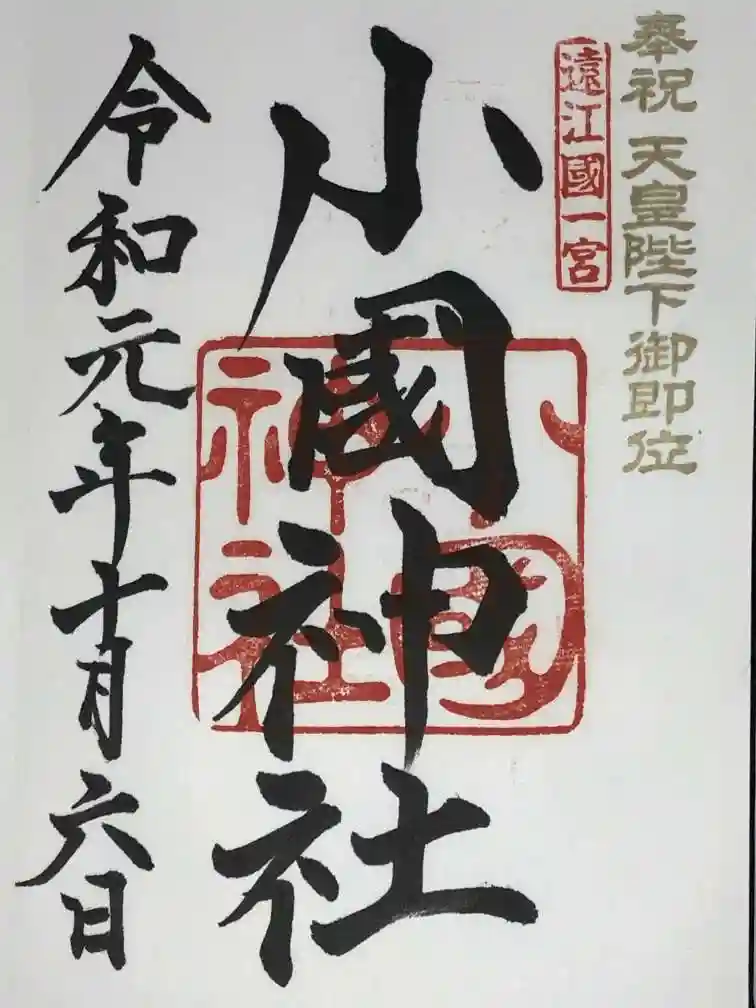 奉祝 天皇陛下御即位
遠江國一宮
小國神社
小國神社
令和元年十月六日